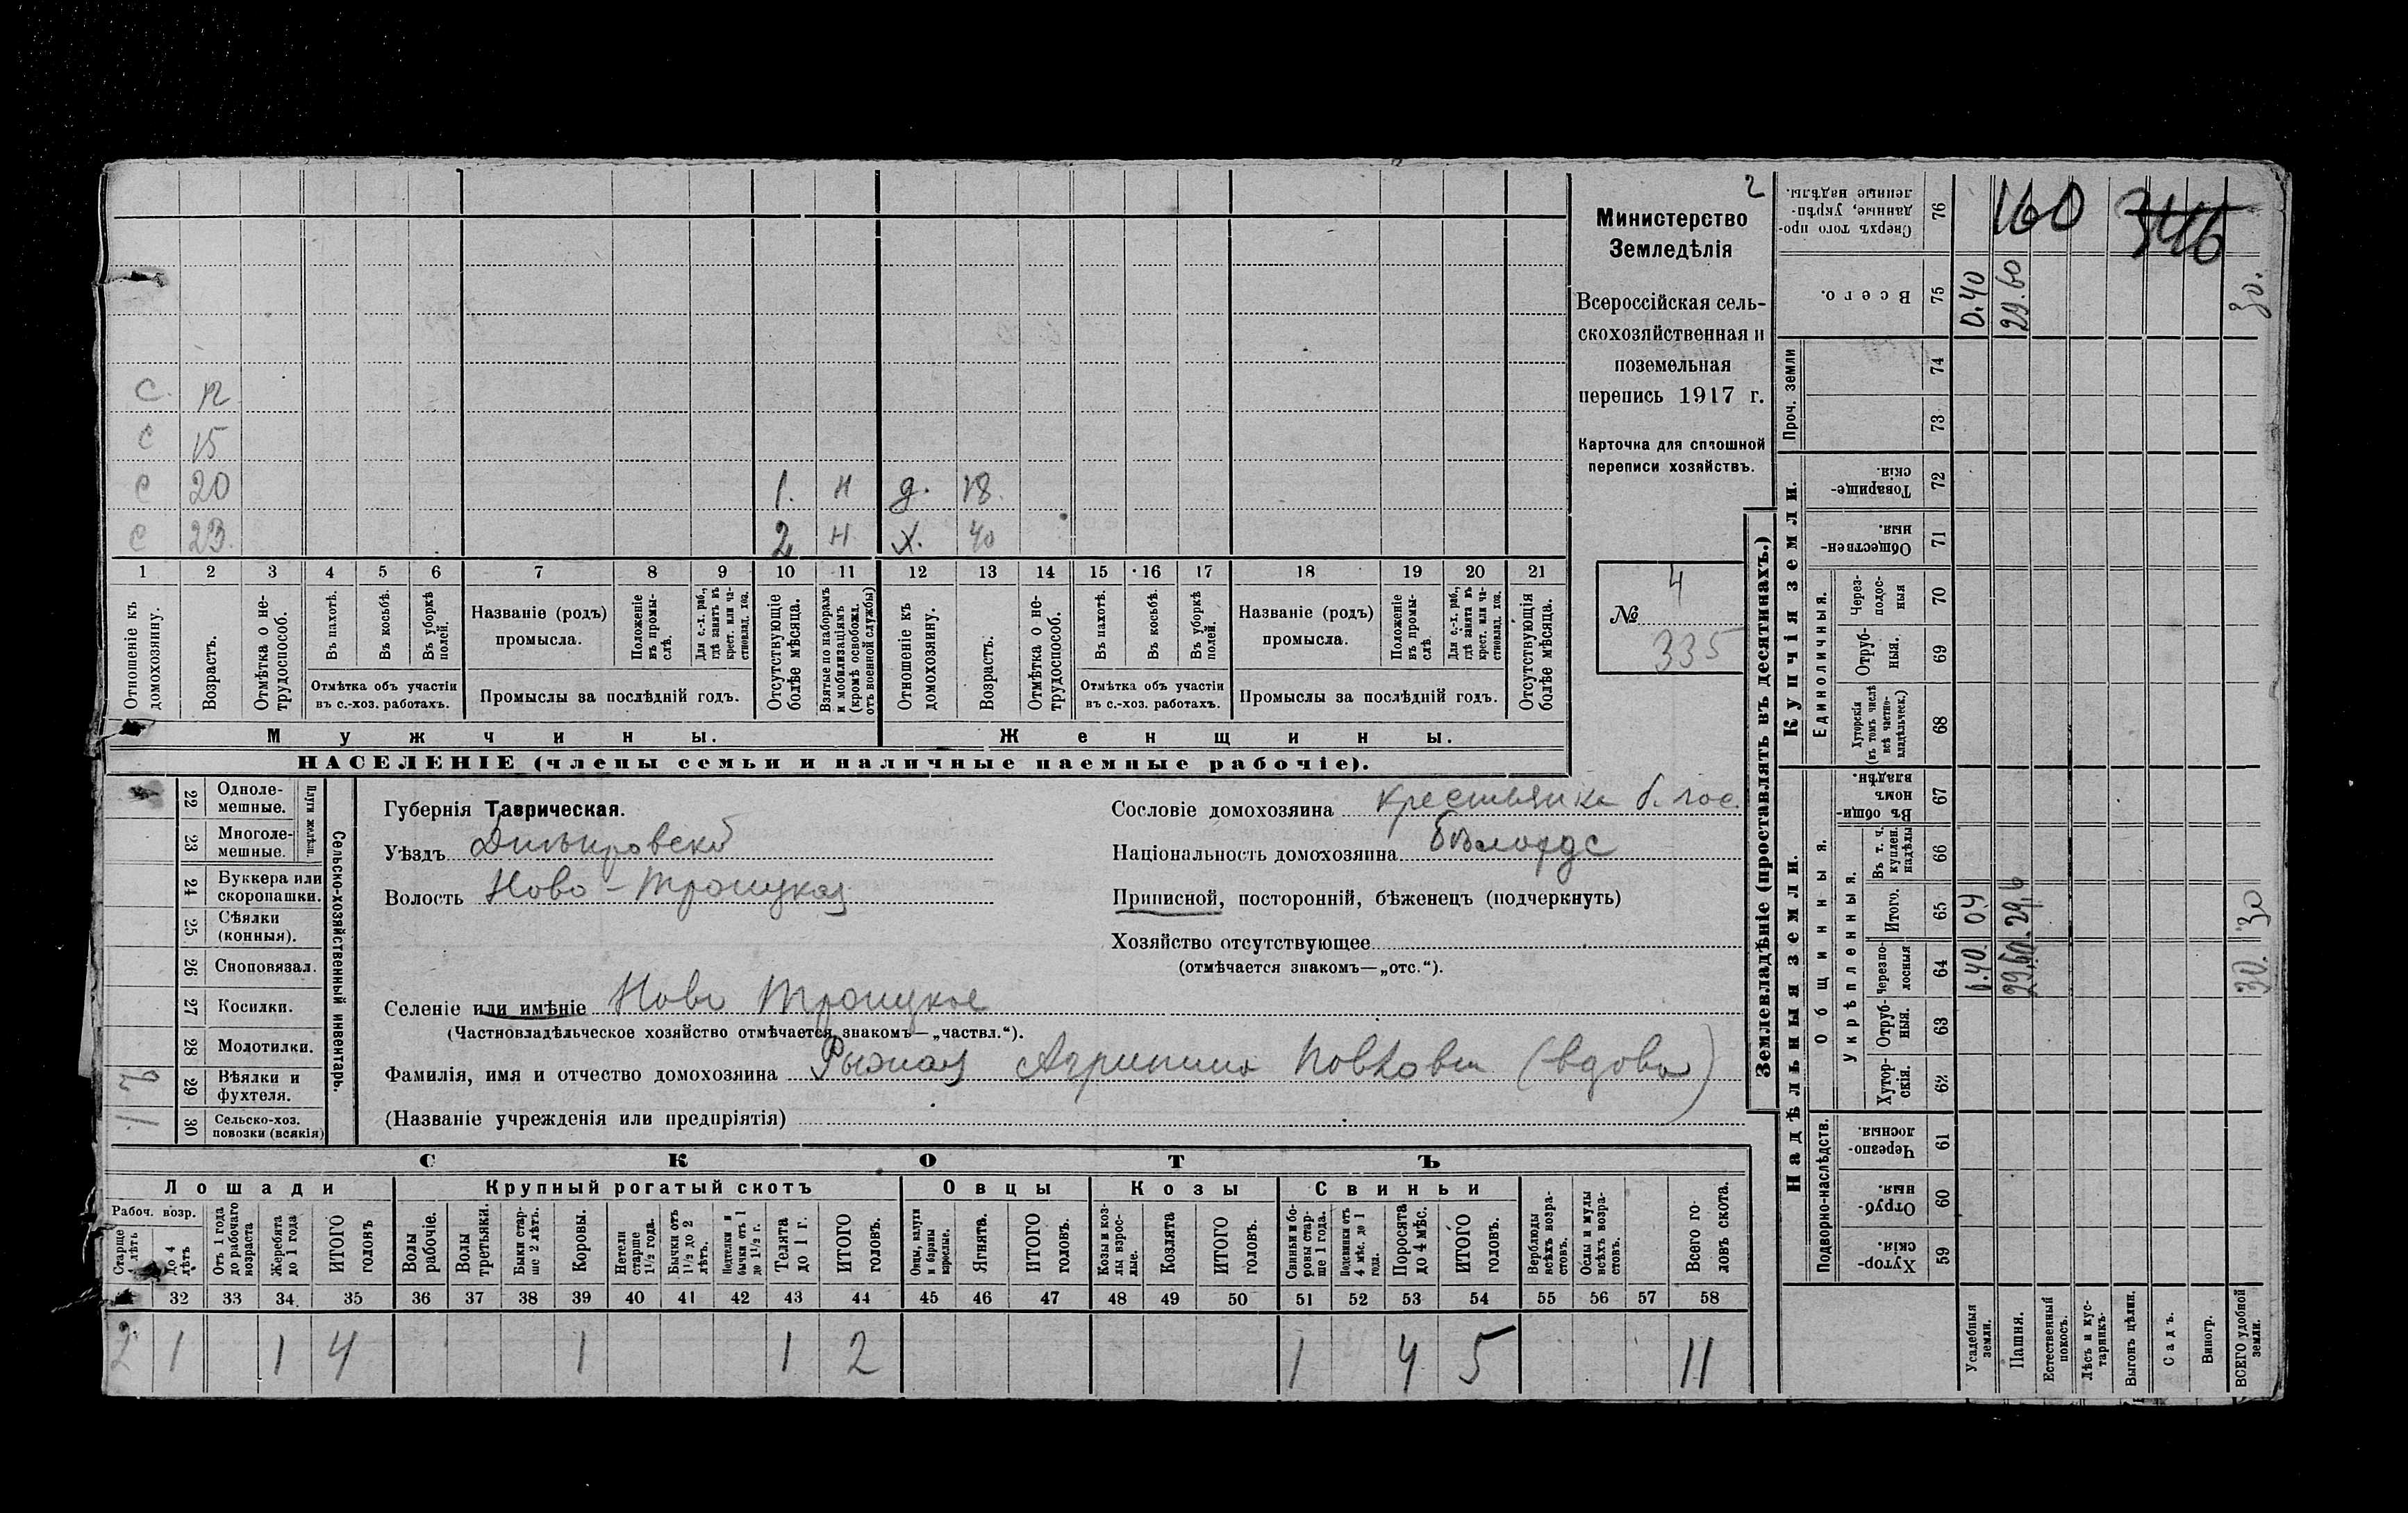 2
Министерство
Земледѣлія
Всероссійская сель-
скохозяйственная и
поземельная
перепись 1917 г.
Карточка для сплошной
переписи хозяйствъ.
№ 4
335
С. 12
С 15
С 20 1. Н д. 18.
С 23. 2 Н Х. 40
1 2 3 4 5 6 7 8 9 10 11 12 13 14 15 16 17 18 19 20 21
Отношеніе къ домохозяину.
Возрастъ.
Отмѣтка о не-трудоспособ.
Въ пахотѣ.
Въ косьбѣ.
Въ уборкѣ полей.
Отмѣтка объ участіи въ с.-хоз. работахъ.
Названіе (родъ) промысла.
Положеніе въ промы-слѣ.
Для с.-х. раб., гдѣ занятъ въ крест. или ча-стновлад. хоз.
Промыслы за послѣдній годъ.
Отсутствующіе болѣе мѣсяца.
Взятые по наборамъ и мобилизаціямъ (кромѣ освобожд. отъ военной службы)
Отношеніе къ домохозяину.
Возрастъ.
Отмѣтка о не-трудоспособ.
Въ пахотѣ.
Въ косьбѣ.
Въ уборкѣ полей.
Отмѣтка объ участіи въ с.-хоз. работахъ.
Названіе (родъ) промысла.
Положеніе въ промы-слѣ.
Для с.-х. раб., гдѣ занята въ крест. или ча-стновлад. хоз.
Промыслы за послѣдній годъ.
Отсутствующія болѣе мѣсяца.
Мужчины. Женщины.
НАСЕЛЕНІЕ (члены семьи и наличные наемные рабочіе).
22 Одноле-мешные.
23 Многоле-мешные.
Плуги желѣзн.
24 Буккера или скоропашки.
25 Сѣялки (конныя).
26 Сноповязал.
27 Косилки.
28 Молотилки.
29 Вѣялки и фухтеля.
1 30 Сельско-хоз. повозки (всякія)
Сельско-хозяйственный инвентарь.
Губернія Таврическая.
Уѣздъ Днѣпровскій
Волость Ново-Троицкая
Селеніе или имѣніе Ново Троицкое
(Частновладѣльческое хозяйство отмѣчается знакомъ—„частвл.“).
Сословіе домохозяина крестьянка б. гос.
Національность домохозяина
Приписной, посторонній, бѣженецъ (подчеркнуть)
Хозяйство отсутствующее
(отмѣчается знакомъ—„отс.“).
Фамилія, имя и отчество домохозяина Рыжая Агрипина (вдова)
(Названіе учрежденія или предпріятія)
СКОТЪ
Лошади Крупный рогатый скотъ Овцы Козы Свиньи
Рабоч. возр.
Старше 4 лѣтъ
до 4 лѣтъ
Отъ 1 года до рабочаго возраста
Жеребята до 1 года
ИТОГО головъ
Волы рабочіе.
Волы третьяки.
Быки стар-ше 2 лѣтъ.
Коровы.
Нетели старше 1½ года.
Бычки отъ 1½ до 2 лѣтъ.
Подтелки и бычки отъ 1 до 1½ г.
Телята до 1 г.
ИТОГО головъ.
Овцы, валухи и бараны взрослые.
Ягнята.
ИТОГО головъ.
Козы и коз-лы взрос-лые.
Козлята
ИТОГО головъ.
Свиньи и бо-ровы стар-ше 1 года.
Подсвинки отъ 4 мѣс. до 1 года.
Поросята до 4 мѣс.
ИТОГО головъ.
Верблюды всѣхъ возра-стовъ.
Ослы и мулы всѣхъ возра-стовъ.
Всего го-ловъ скота.
32 33 34 35 36 37 38 39 40 41 42 43 44 45 46 47 48 49 50 51 52 53 54 55 56 57 58
2 1 1 4 1 1 2 1 4 5 11
Землевладѣніе (проставлять въ десятинахъ.)
Надѣльныя земли. Купчія земли.
Подворно-наслѣдств.
Общинныя.
Укрѣпленныя.
Единоличныя.
Проч. земли
Сверхъ того про-данные, укрѣп-ленные надѣлы. 76
160 346
Всего. 75 0.40 29.60 30.
74
73
Товарище-скія. 72
Обществен-ныя. 71
Через-полос-ныя 70
Отруб-ныя. 69
Хуторскія (въ томъ числѣ всѣ частно-владѣльческ.) 68
Въ общи-номъ владѣн. 67
Въ т. ч. куплен. надѣлы 66
Итого. 65 0,4 29,6 30
Черезпо-лосныя 64 0.40. 29,60. 30.
Отруб-ныя. 63
Хутор-скія. 62
Черезпо-лосныя 61
Отруб-ныя. 60
Хутор-скія. 59
Усадебныя земли.
Пашня.
Естественный покосъ.
Лѣсъ и кус-тарникъ.
Выгонъ цѣлин.
Садъ.
Виногр.
ВСЕГО удобной земли.